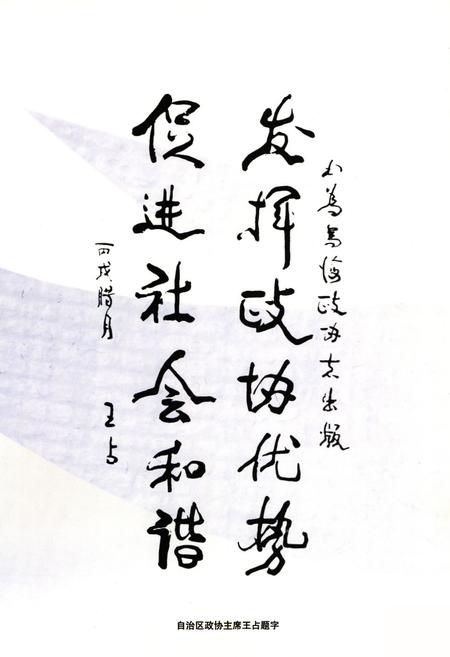 為乌海政协志出版
发挥政协优势
促进社会和谐
丙戌腊月 王占
自治区政协主席王占题字